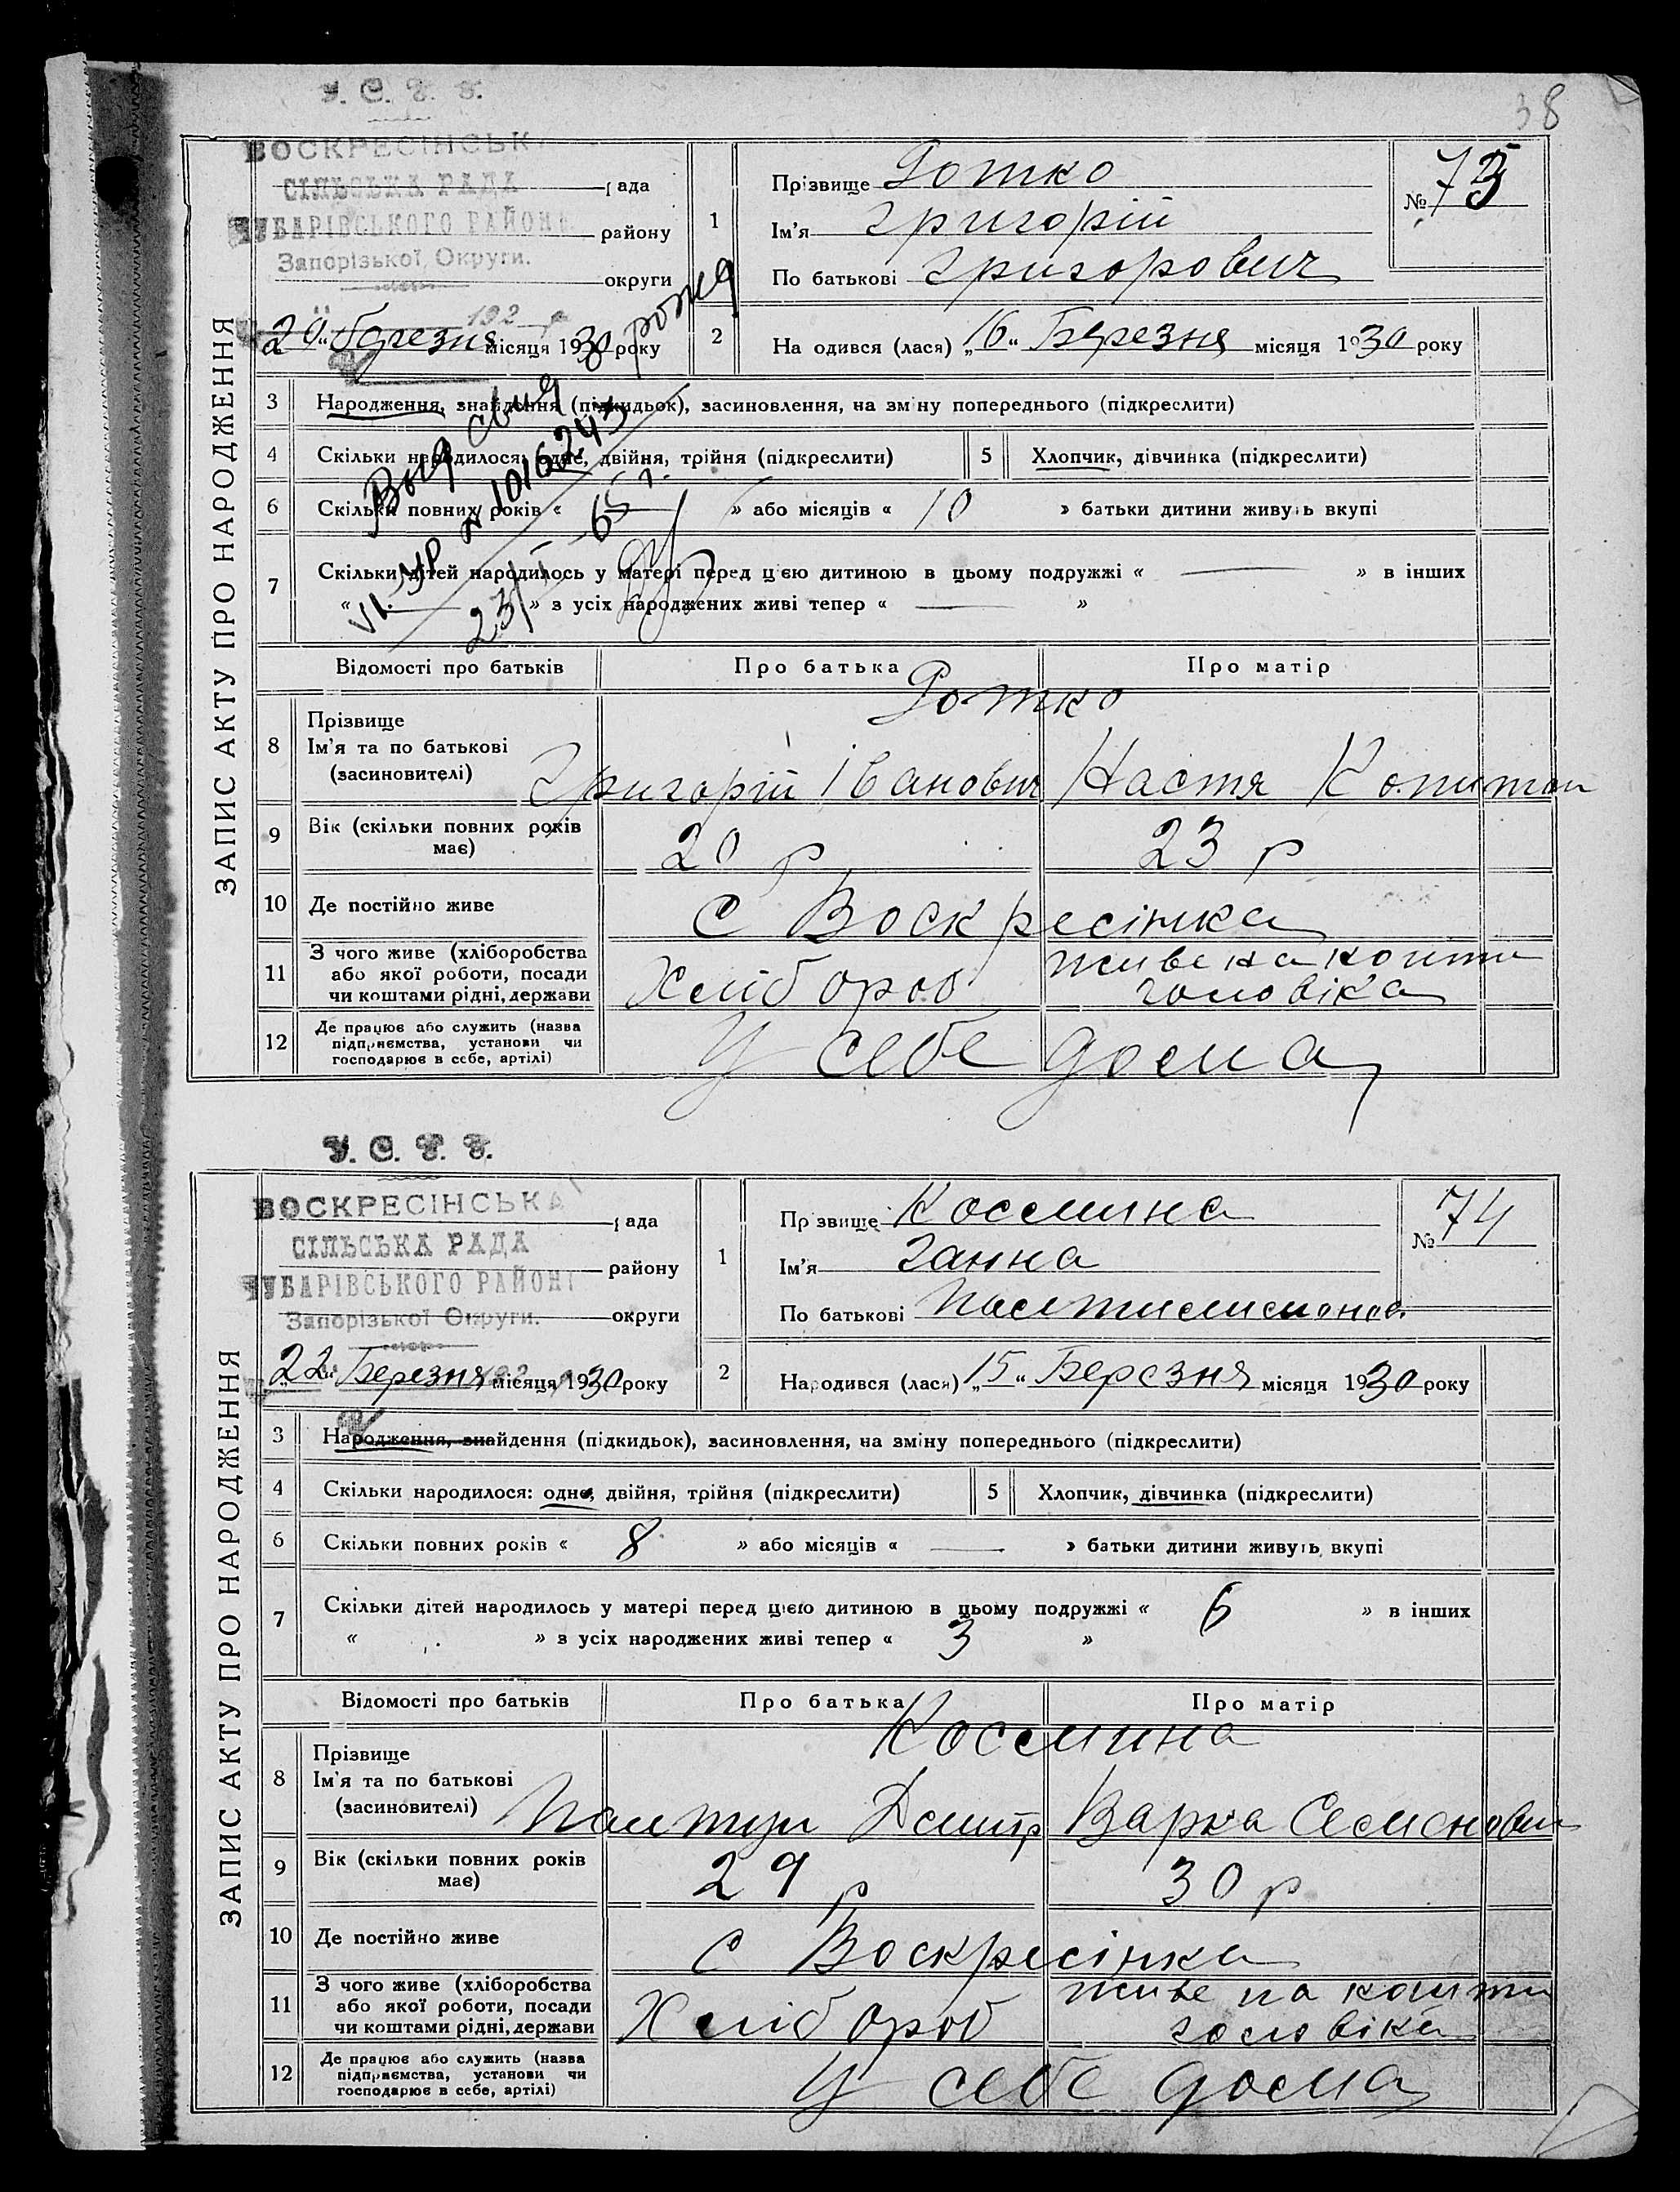 38
У. С. Р. Р.
ВОСКРЕСІНСЬКА
СІЛЬСЬКА РАДА рада
ЧУБАРІВСЬКОГО РАЙОНУ району
Запорізької Округи. округи
192 р
„29“ березня місяця 1930 року
ЗАПИС АКТУ ПРО НАРОДЖЕННЯ
1 Прізвище Ротко
Ім'я Григорій
По батькові Григорович
№ 73
2 Народився (лася) „16“ Березня місяця 1930 року
3 Народження, знайдення (підкидьок), засиновлення, на зміну попереднього (підкреслити)
4 Скільки народилося: одне, двійня, трійня (підкреслити) 5 Хлопчик, дівчинка (підкреслити)
6 Скільки повних років « » або місяців « 10 » батьки дитини живуть вкупі
7 Скільки дітей народилось у матері перед цією дитиною в цьому подружжі « — » в інших
« — » з усіх народжених живі тепер « — »
№ 1016243
23/I – 65 г.
Відомості про батьків Про батька Про матір
Ротко
8 Прізвище
Ім'я та по батькові
(засиновителі) Григорій Іванович Настя
9 Вік (скільки повних років має) 20 р 23 р
10 Де постійно живе С Воскресінка
11 З чого живе (хліборобства
або якої роботи, посади
чи коштами рідні, держави Хлібороб живе на кошти чоловіка
12 Де працює або служить (назва
підприємства, установи чи
господарює в себе, артілі) У себе дома
У. С. Р. Р.
ВОСКРЕСІНСЬКА
СІЛЬСЬКА РАДА рада
ЧУБАРІВСЬКОГО РАЙОНУ району
Запорізької Округи. округи
„22“ Березня місяця 1930 року
ЗАПИС АКТУ ПРО НАРОДЖЕННЯ
1 Прізвище Космина
Ім'я Ганна
По батькові
№ 74
2 Народився (лася) „15“ Березня місяця 1930 року
3 Народження, знайдення (підкидьок), засиновлення, на зміну попереднього (підкреслити)
4 Скільки народилося: одне, двійня, трійня (підкреслити) 5 Хлопчик, дівчинка (підкреслити)
6 Скільки повних років « 8 » або місяців « — » батьки дитини живуть вкупі
7 Скільки дітей народилось у матері перед цією дитиною в цьому подружжі « 6 » в інших
« » з усіх народжених живі тепер « 3 »
Відомості про батьків Про батька Про матір
Космина
8 Прізвище
Ім'я та по батькові
(засиновителі) Дмитр Варка Семенович
9 Вік (скільки повних років має) 29 р 30 р
10 Де постійно живе С Воскресінка
11 З чого живе (хліборобства
або якої роботи, посади
чи коштами рідні, держави Хлібороб живе на кошти чоловіка
12 Де працює або служить (назва
підприємства, установи чи
господарює в себе, артілі) У себе дома